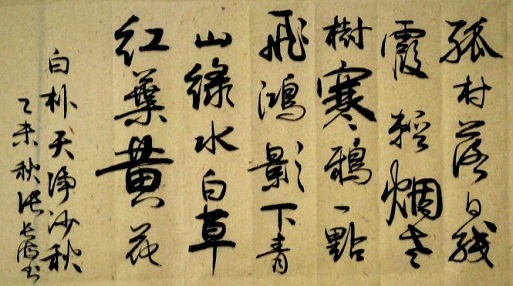 孤村落日残
霞轻烟老
樹寒鴉一點
飛鴻影下青
山綠水白草
红葉黄花
白朴天净沙秋
乙未秋张书